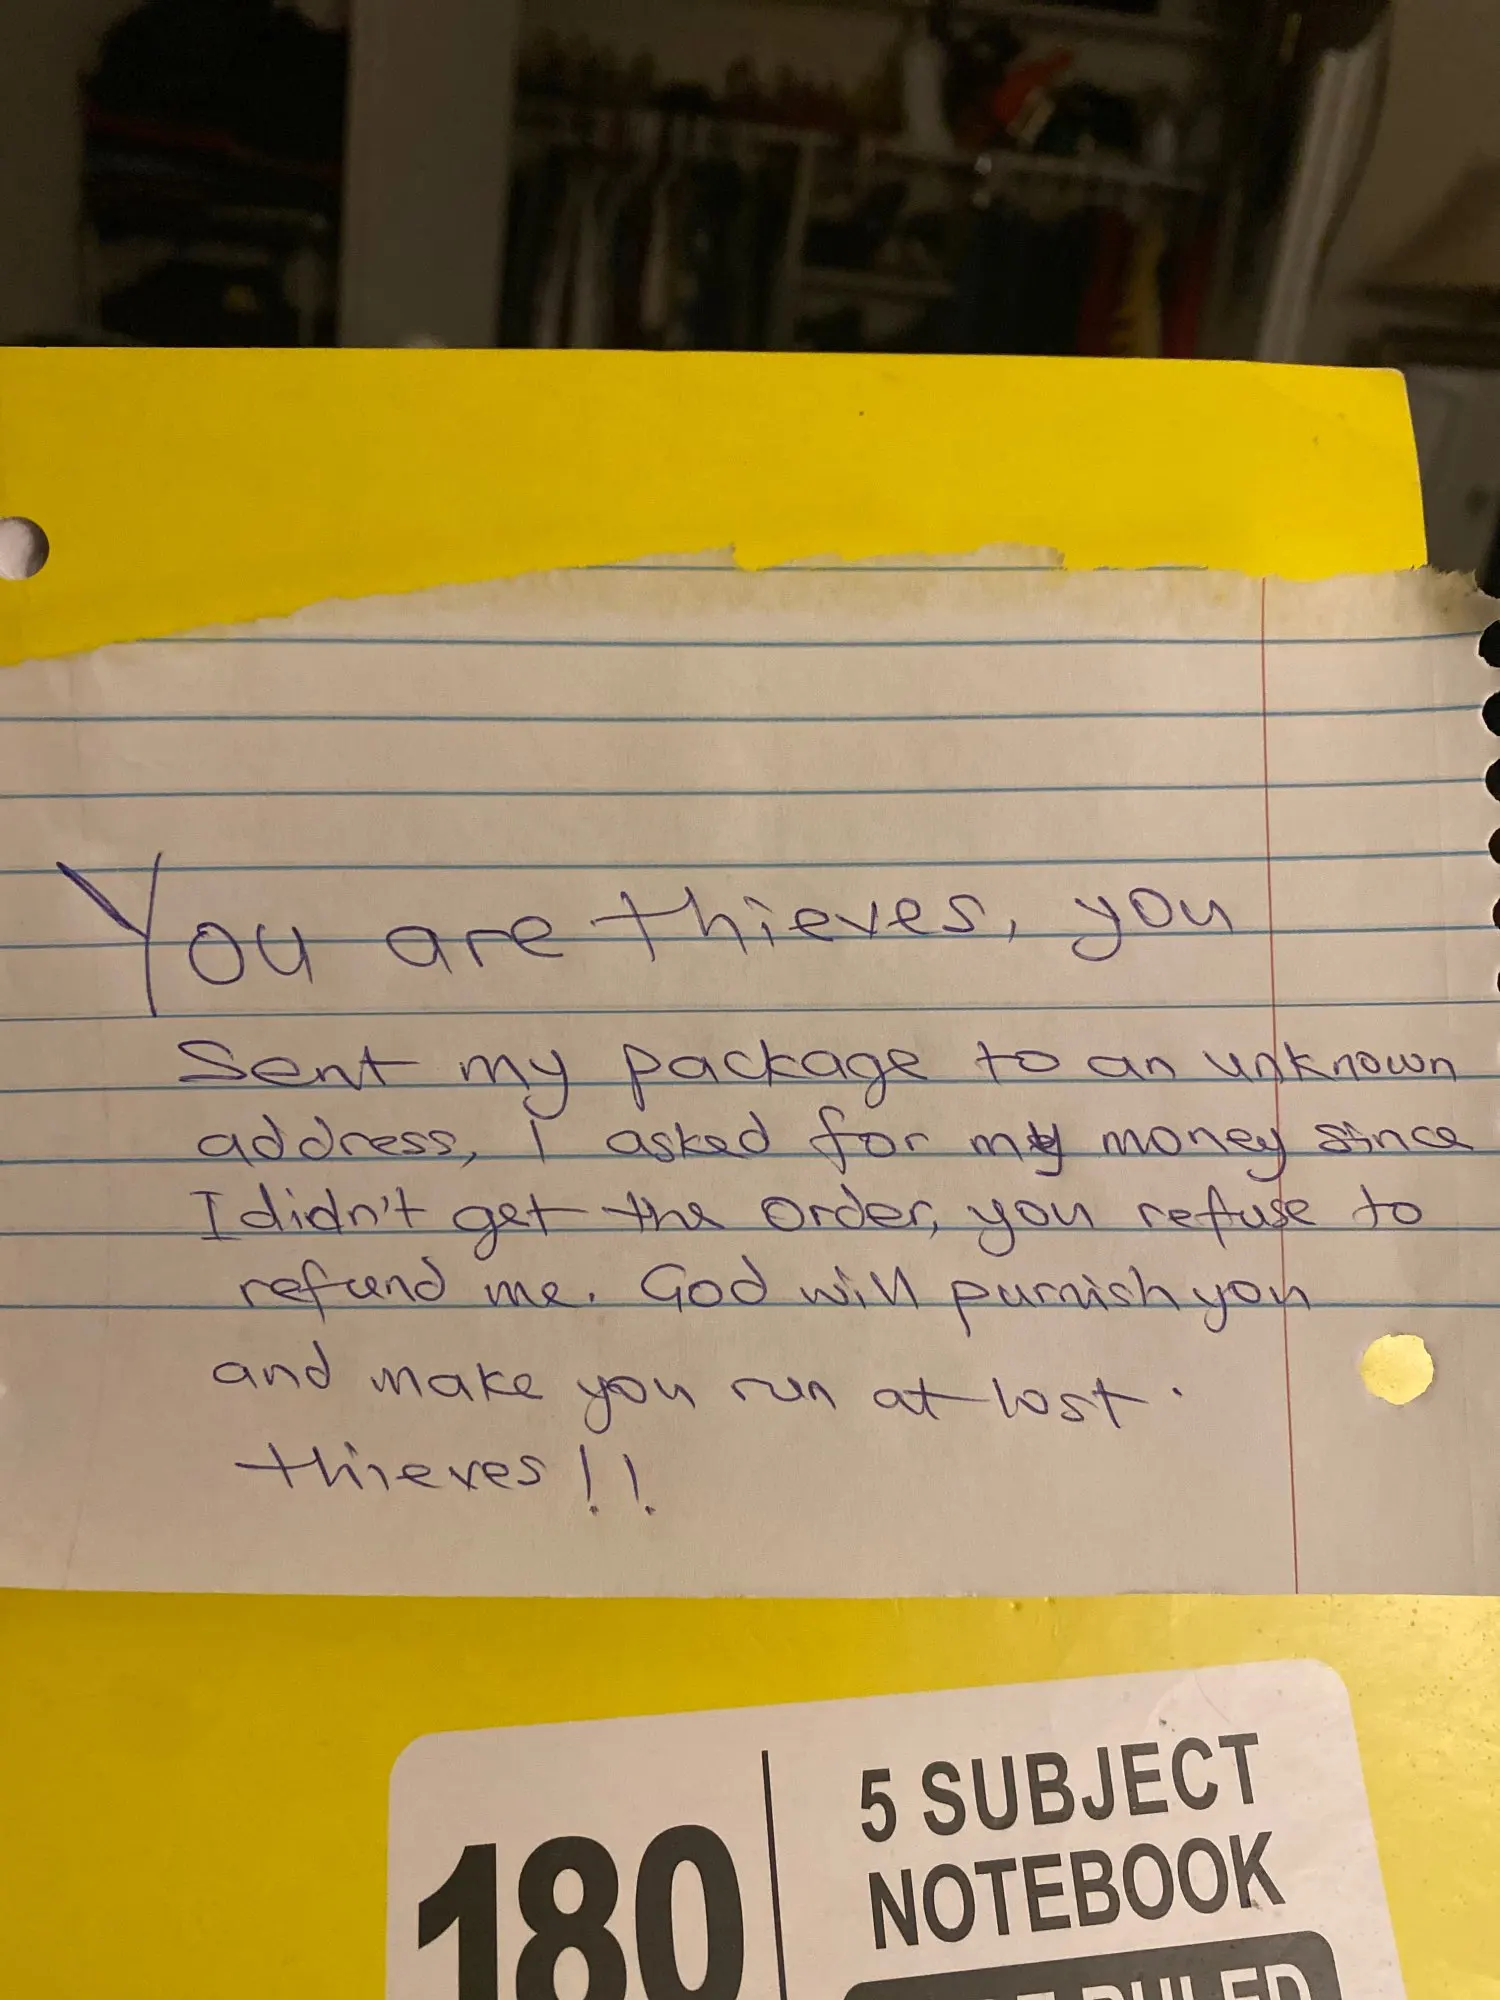 You are thieves, you
Sent my package to an unknown
address, I asked for my money since
I didn't get the order, you refuse to
refund me. God will purnish you
and make you run at lost.
thieves!!
180
5 SUBJECT
NOTEBOOK
RULED